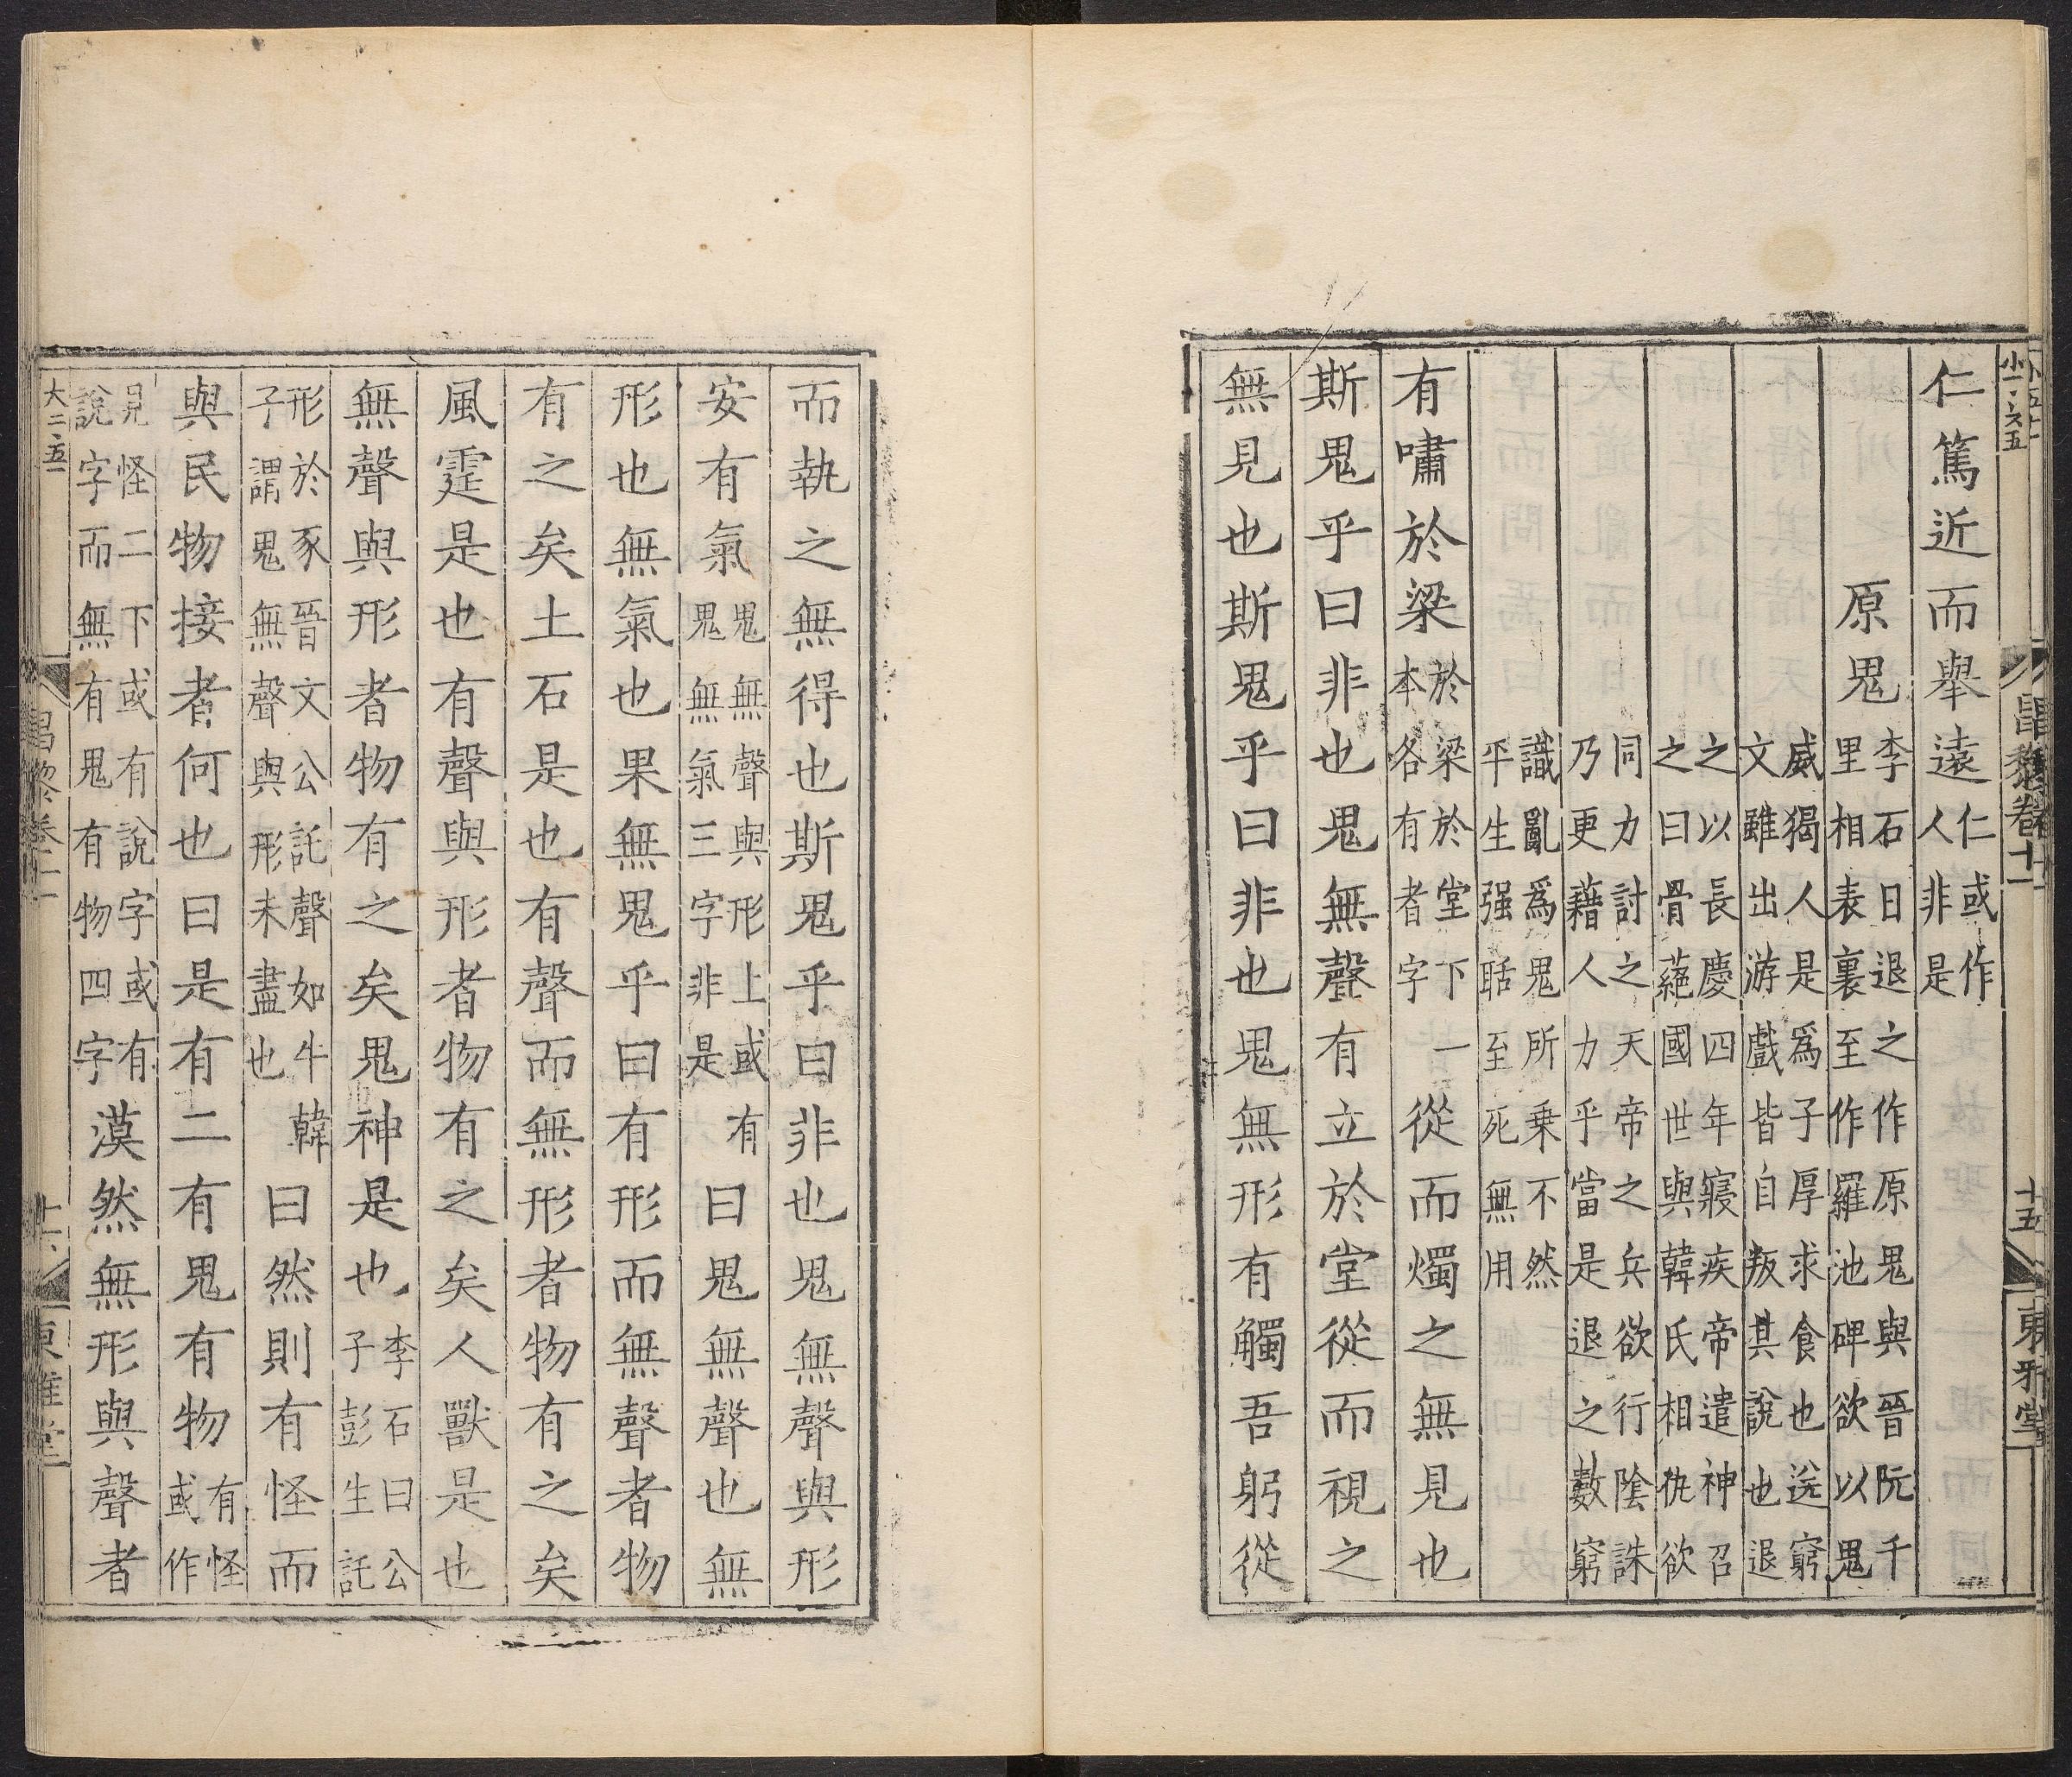 小一、六五 昌黎卷十一 十五 東雅堂
仁篤近而舉遠仁或作人非是
原鬼李石曰退之作原鬼與晉阮千里相表裏至作羅池碑欲以鬼
威猲人是爲子厚求食也送窮文雖出游戲皆自叛其說也退
之以長慶四年寢疾帝遣神召之曰骨蕝國世與韓氏相仇欲
同力討之天帝之兵欲行陰誅乃更藉人力乎當是退之數窮
識亂爲鬼所乗不然平生强聒至死無用
有嘯於梁於梁於堂下一本各有者字從而燭之無見也
斯鬼乎曰非也鬼無聲有立於堂從而視之
無見也斯鬼乎曰非也鬼無形有觸吾躬從
而執之無得也斯鬼乎曰非也鬼無聲與形
安有氣鬼無聲與形上或有鬼無氣三字非是曰鬼無聲也無
形也無氣也果無鬼乎曰有形而無聲者物
有之矣土石是也有聲而無形者物有之矣
風霆是也有聲與形者物有之矣人獸是也
無聲與形者物有之矣鬼神是也李石曰公子彭生託
形於豕晉文公託聲如牛韓子謂鬼無聲與形未盡也曰然則有怪而
與民物接者何也曰是有二有鬼有物有怪或作
見怪二下或有說字或有說字而無有鬼有物四字漠然無形與聲者
大二、五一 昌黎卷十一 東雅堂